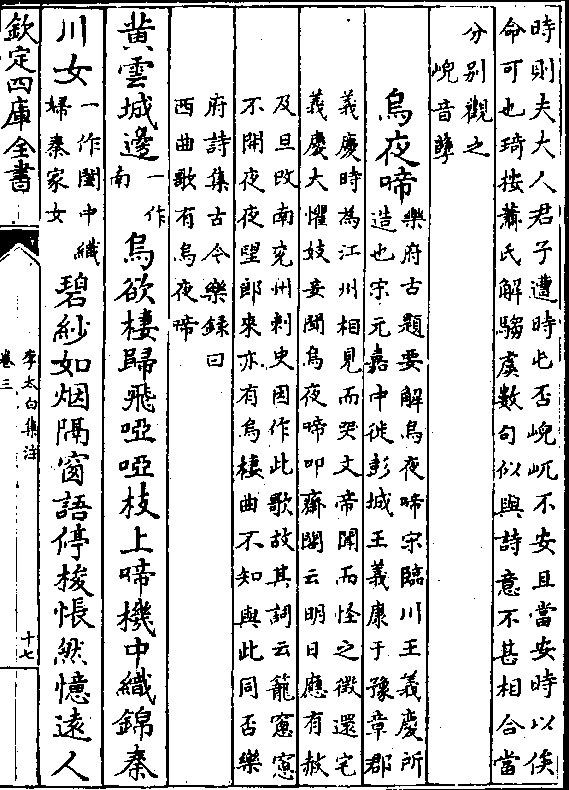 時則夫大人君子遭時屯否峴屼不安且當安時以俟
命可也琦按蕭氏解騶虞數句似與詩意不甚相合當
分别觀之
峴音孽
烏夜啼
樂府古題要解烏夜啼宋臨川王義慶所
造也宋元嘉中徙彭城王義康于豫章郡
義慶時為江州相見而哭文帝聞而怪之徵還宅
義慶大懼妓妾聞烏夜啼叩齋閣云明日應有赦
及旦改南兖州刺史因作此歌故其詞云籠窻窻
不開夜夜望郎來亦有烏棲曲不知與此同否樂
府詩集古今樂録曰
西曲歌有烏夜啼
黄雲城邊
一作
南
烏欲棲歸飛啞啞枝上啼機中織錦秦
川女
一作閨中織
婦秦家女
碧紗如烟隔窗語停梭悵然憶遠人
欽定四庫全書
李太白集注
卷三
十七